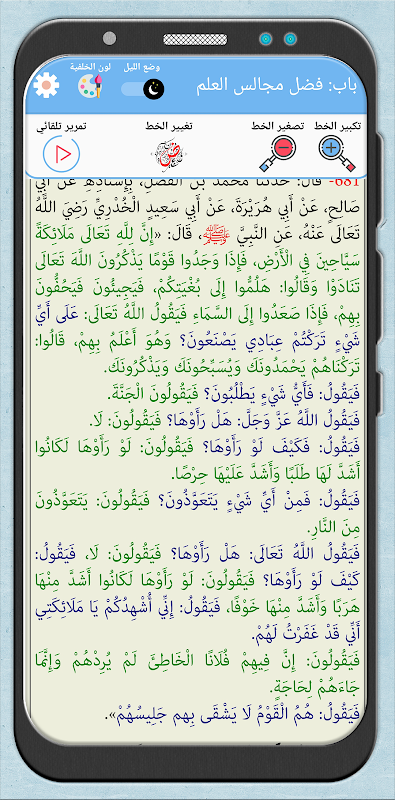 وضع الليل
لون الخلفية
باب: فضل مجالس العلم
تكبير الخط
تصغير الخط
تغيير الخط
تمرير تلقائي
681- قال: حدثنا محمد بن الفضل، بإسناده عن أبي
صَالِحٍ، عَنْ أَبِي هُرَيْرَةَ، عَنْ أَبِي سَعِيدٍ الْخُدْرِيِّ رَضِيَ اللَّهُ
تَعَالَى عَنْهُ، عَنِ النَّبِيِّ ﷺ، قَالَ: «إِنَّ لِلَّهِ تَعَالَى مَلَائِكَةً
سَيَّاحِينَ فِي الْأَرْضِ، فَإِذَا وَجَدُوا قَوْمًا يَذْكُرُونَ اللَّهَ تَعَالَى
تَنَادَوْا وَقَالُوا: هَلُمُّوا إِلَى بُغْيَتِكُمْ، فَيَجِيئُونَ فَيَحُفُّونَ
بِهِمْ، فَإِذَا صَعَدُوا إِلَى السَّمَاءِ فَيَقُولُ اللَّهُ تَعَالَى: عَلَى أَيِّ
شَيْءٍ تَرَكْتُمْ عِبَادِي يَصْنَعُونَ؟ وَهُوَ أَعْلَمُ بِهِمْ، قَالُوا:
تَرَكْنَاهُمْ يَحْمَدُونَكَ وَيُسَبِّحُونَكَ وَيَذْكُرُونَكَ.
فَيَقُولُ: فَأَيُّ شَيْءٍ يَطْلُبُونَ؟ فَيَقُولُونَ الْجَنَّةَ.
فَيَقُولُ اللَّهُ عَزَّ وَجَلَّ: هَلْ رَأَوْهَا؟ فَيَقُولُونَ: لَا.
فَيَقُولُ: فَكَيْفَ لَوْ رَأَوْهَا؟ فَيَقُولُونَ: لَوْ رَأَوْهَا لَكَانُوا
أَشَدَّ لَهَا طَلَبًا وَأَشَدَّ عَلَيْهَا حِرْصًا.
فَيَقُولُ: فَمِنْ أَيِّ شَيْءٍ يَتَعَوَّذُونَ؟ فَيَقُولُونَ: يَتَعَوَّذُونَ
مِنَ النَّارِ.
فَيَقُولُ اللَّهُ تَعَالَى: هَلْ رَأَوْهَا؟ فَيَقُولُونَ: لَا، فَيَقُولُ:
كَيْفَ لَوْ رَأَوْهَا؟ فَيَقُولُونَ: لَوْ رَأَوْهَا لَكَانُوا أَشَدَّ مِنْهَا
هَرَبًا وَأَشَدَّ مِنْهَا خَوْفًا، فَيَقُولُ: إِنِّي أُشْهِدُكُمْ يَا مَلَائِكَتِي
أَنِّي قَدْ غَفَرْتُ لَهُمْ.
فَيَقُولُونَ: إِنَّ فِيهِمْ فُلَانًا الْخَاطِئَ لَمْ يُرِدْهُمْ وَإِنَّمَا
جَاءَهُمْ لِحَاجَةٍ.
فَيَقُولُ: هُمُ الْقَوْمُ لَا يَشْقَى بِهِم جَلِيسُهُمْ».